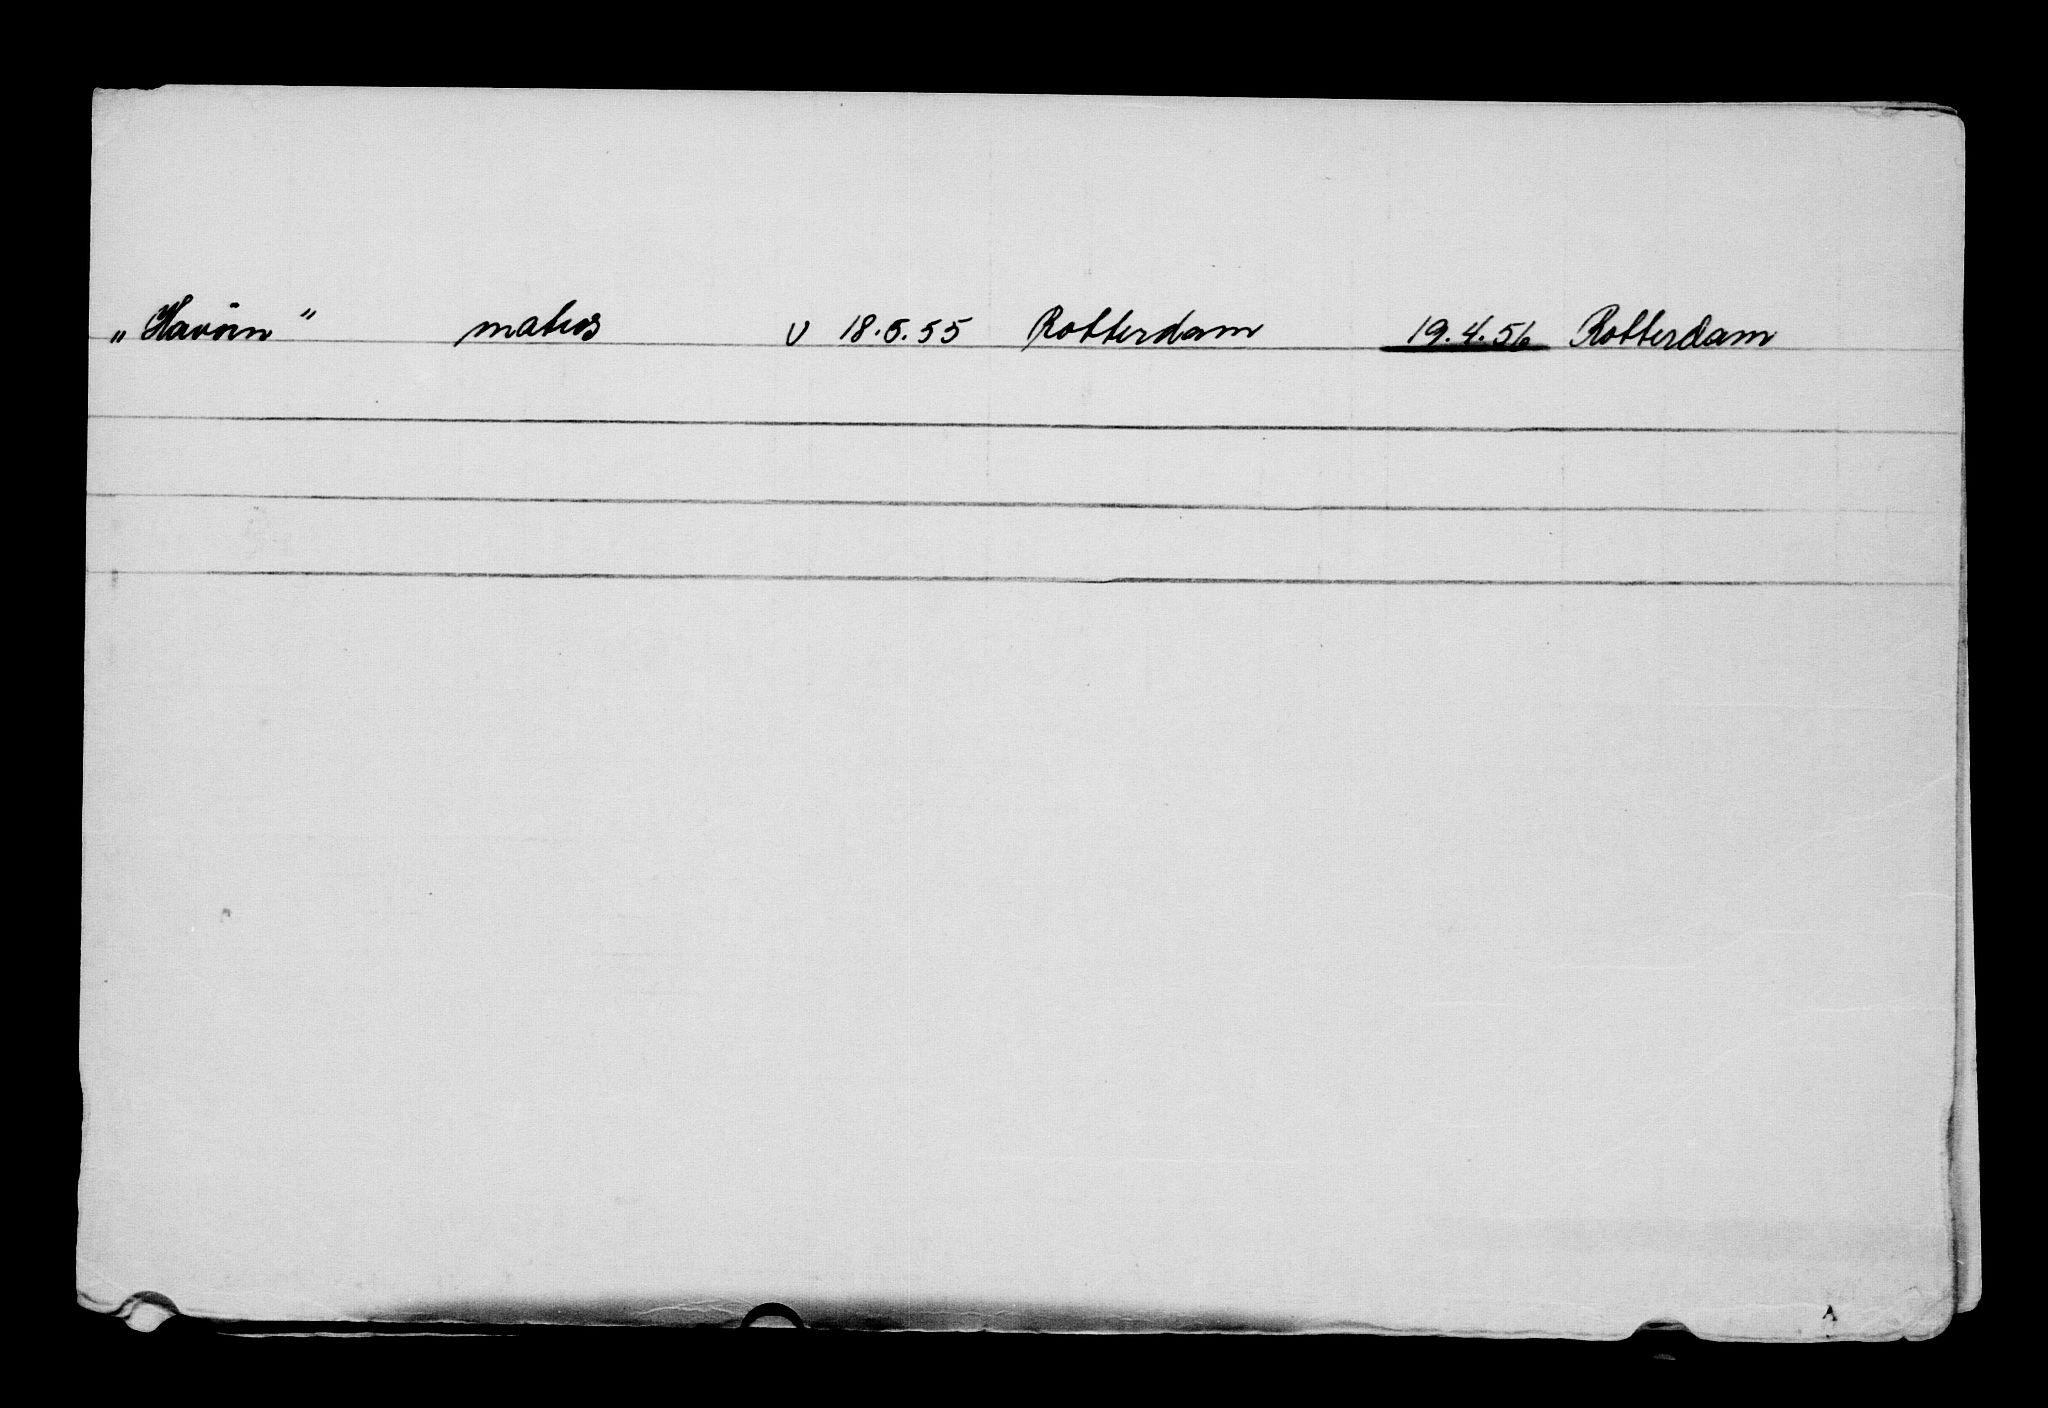 „Havörn“ matros v 18.5.55 Rotterdam 19.4.56 Rotterdam
A